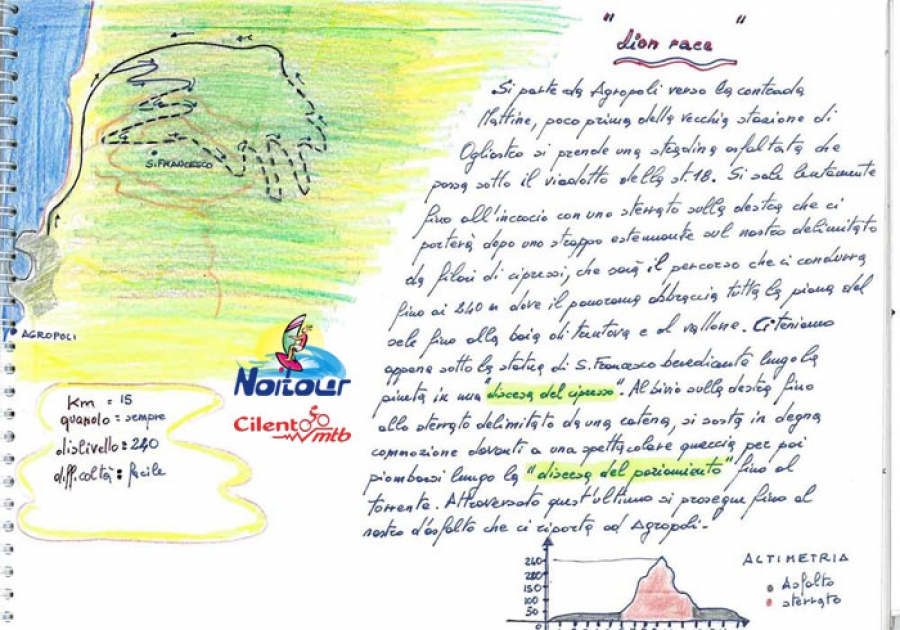 " Lion race "
Si parte da Agropoli verso la contrada
Mattine, poco prima della vecchia stazione di
Ogliastro si prende una stradina asfaltata che
passa sotto il viadotto della st. 18. Si sale lentamente
fino all'incrocio con uno sterrato sulla destra che ci
porterà dopo uno strappo estenuante sul nostro delimitato
da filari di cipressi, che sarà il percorso che ci condurrà
fino ai 240 m dove il panorama abbraccia tutta la piana del
sele fino alla baia di trentova e al vallone. Ci teniamo
appena sotto la statua di S. Francesco benedicente lungo la
pineta in una "discesa del cipresso". Al bivio sulla destra fino
allo sterrato delimitato da una catena, si sosta in degna
commozione davanti a una spettacolare quercia per poi
piombarsi lungo la "discesa del" fino al
torrente. Attraversato quest'ultimo si prosegue fino al
nastro d'asfalto che ci riporta ad Agropoli.
S. FRANCESCO
AGROPOLI
Km = 15
quando = sempre
dislivello = 240
difficoltà : facile
Noitour
Cilento mtb
ALTIMETRIA
Asfalto
sterrato
240
200
150
100
50
0